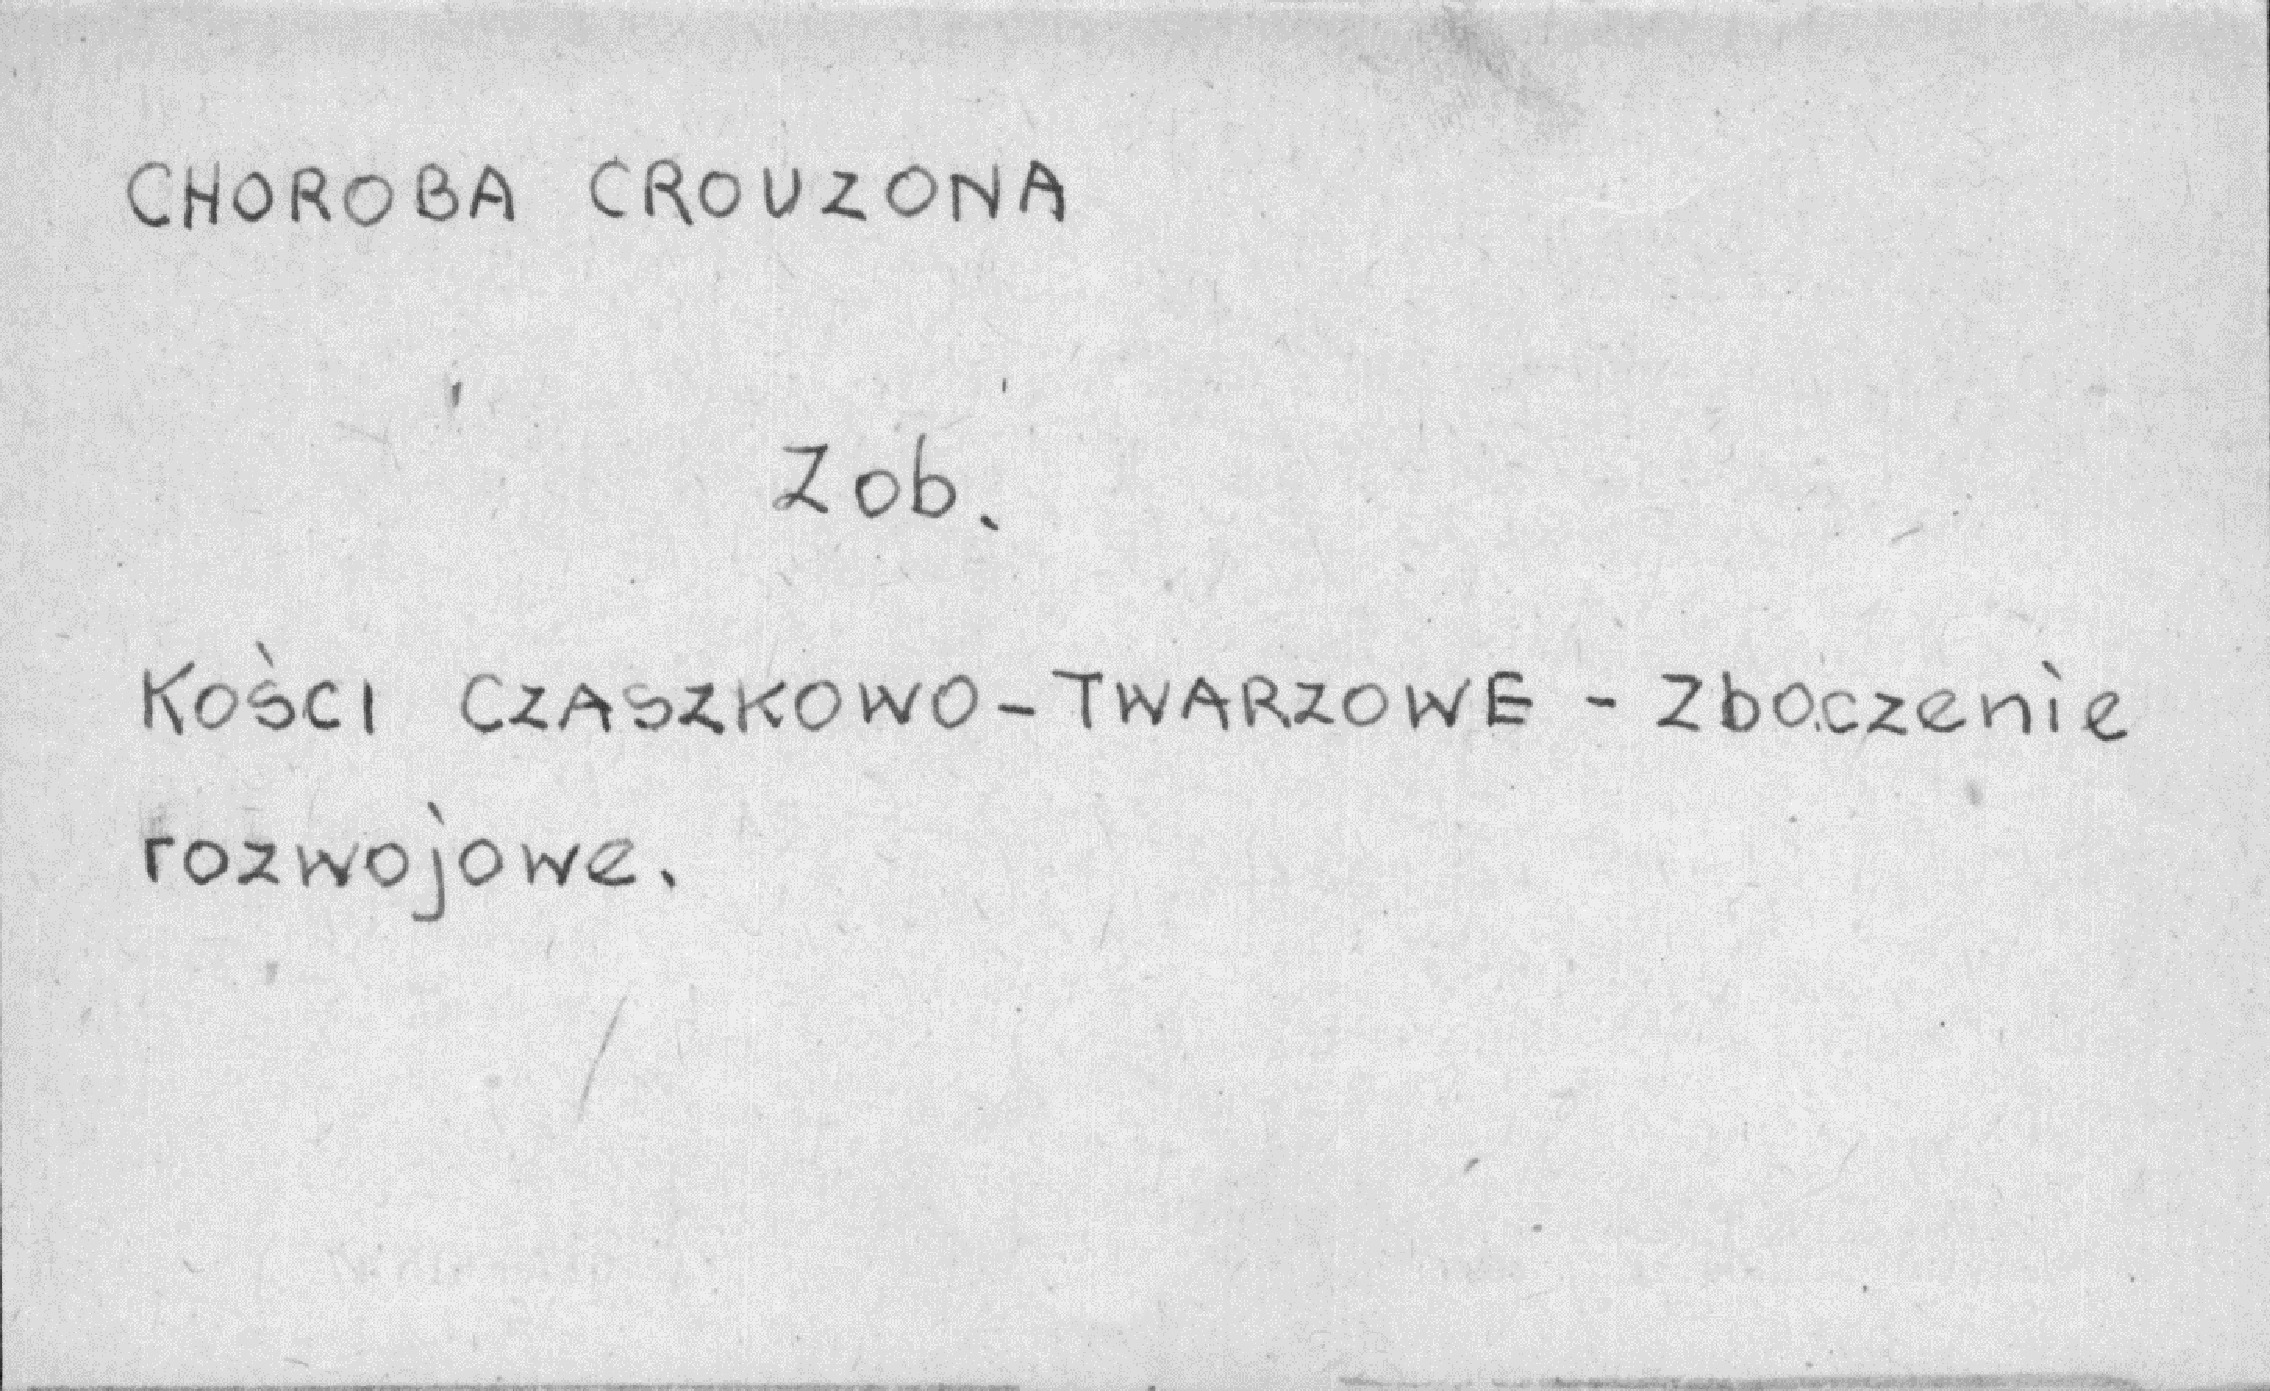 CHOROBA CROUZONA
Zob.
KOŚCI CZASZKOWO-TWARZOWE - Zboczenie
rozwojowe.